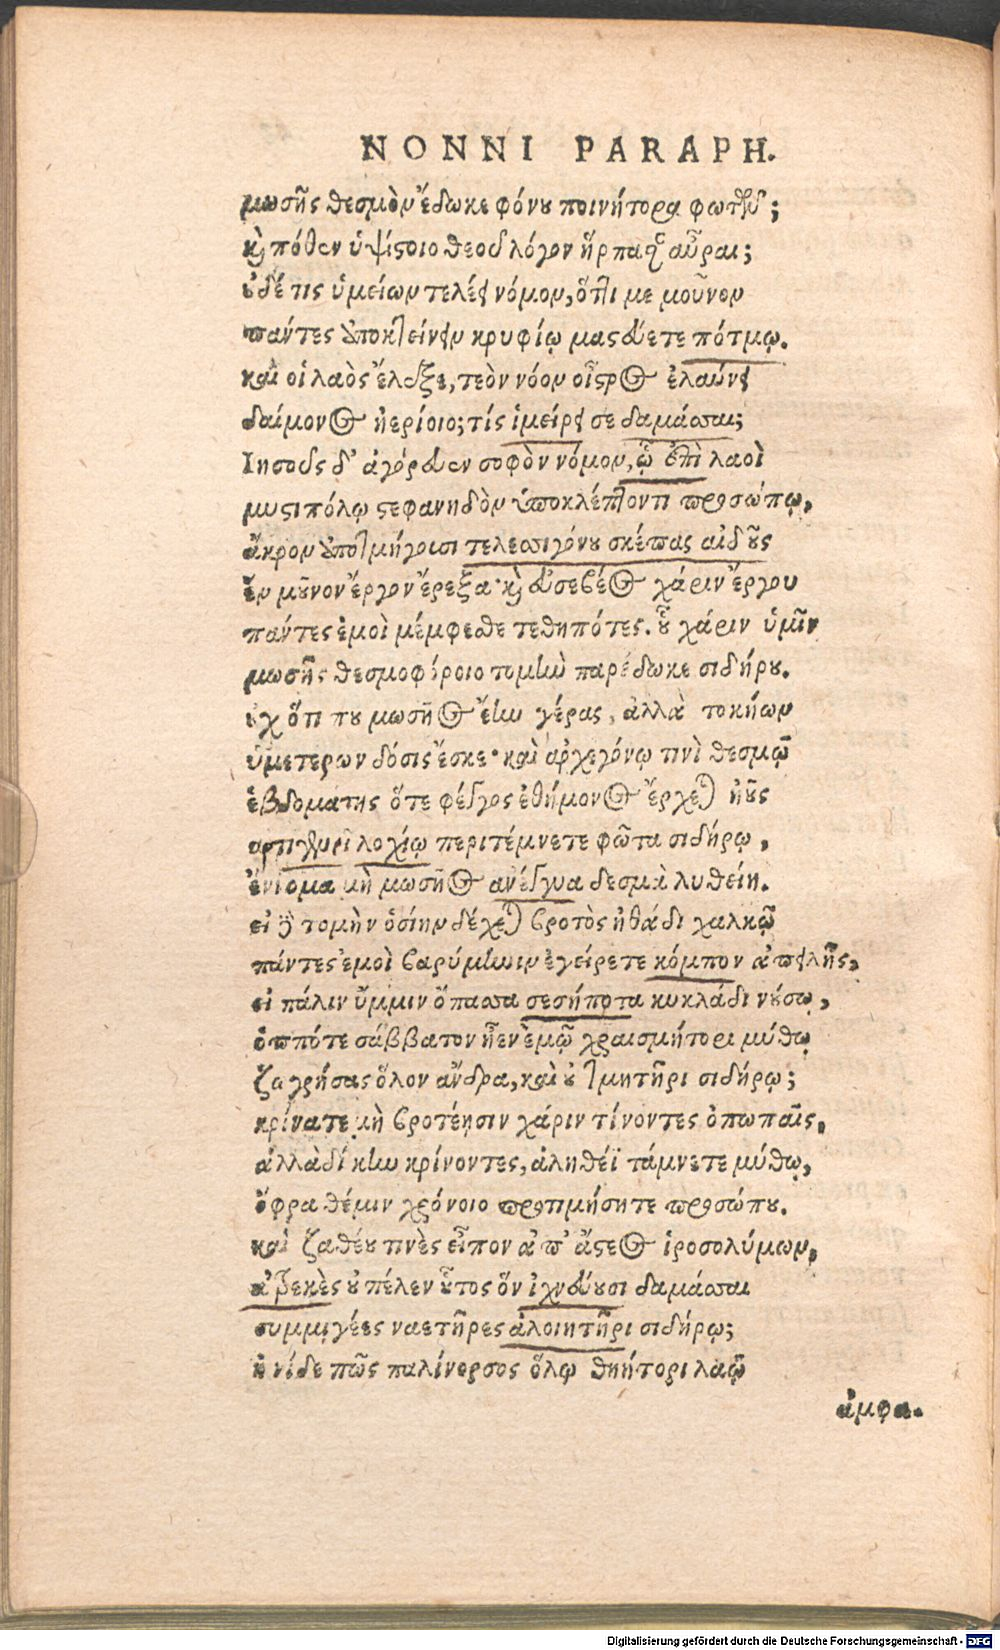 NONNI PARAPH.
μωσῆς θεσμὸν ἔδωκε φόνου ποινήτορα φωτῶν;
καὶ πόθεν ὑψίστοιο θεοῦ λόγον ἥρπασαν αὖραι;
οὐδέ τις ὑμείων τελέει νόμον, ὅττι με μοῦνον
πάντες ἀποκτείνειν κρυφίῳ μαστεύετε πότμῳ.
καὶ οἱ λαὸς ἔλεξε, τεὸν νόον οἶστρος ἐλαύνει
δαίμονος ἠερίοιο; τίς ἱμείρει σε δαμάσσαι;
Ιησοῦς δ' ἀγόρευεν σοφὸν νόμον, ᾧ ἐπὶ λαοὶ
μυστιπόλῳ στεφανηδὸν ὑποκλέπτοντι προσώπῳ,
ἄκρον ἀποτμήγουσι τελεσσιγόνου σκέπας αἰδοῦς
ἓν μοῦνον ἔργον ἔρεξα· καὶ εὐσεβέος χάριν ἔργου
πάντες ἐμοὶ μέμφεσθε τεθηπότες. οὗ χάριν ὑμῖν
μωσῆς θεσμοφόροιο τομὴν παρέδωκε σιδήρου.
οὐχ ὅτι που μωσῆος ἔην γέρας, ἀλλὰ τοκήων
ὑμετέρων δόσις ἔσκε· καὶ ἀρχεγόνῳ τινὶ θεσμῷ
ἑβδομάτης ὅτε φέγγος ἐθήμονος ἔρχεται ἠοῦς
ἀρτιγενεῖ λοχίῳ περιτέμνετε φῶτα σιδήρῳ,
ἐννομα μὴ μωσῆος ἀνέγγυα δεσμὰ λυθείη.
εἰ δὲ τομὴν ὁσίην δέχεται βροτὸς ἠθάδι χαλκῷ
πάντες ἐμοὶ βαρύμηνιν ἐγείρετε κόμπον ἀπειλῆς,
εἰ πάλιν ὔμμιν ὄπασσα σεσηπότα κυκλάδι νούσῳ,
ὁππότε σάββατον ἦεν ἐμῷ χραισμήτορι μύθῳ
ζωγρήσας ὅλον ἄνδρα, καὶ οὐ τμητῆρι σιδήρῳ;
κρίνατε μὴ βροτέῃσιν χάριν τίνοντες ὀπωπαῖς,
ἀλλὰ δίκην κρίνοντες, ἀληθέϊ τάμνετε μύθῳ,
ὄφρα θέμιν χρόνοιο προτιμήσητε προσώπου.
καὶ ζαθέου τινὲς εἶπον ἀπ' ἄστεος ἱροσολύμων,
ἀτρεκὲς οὐ πέλεν οὗτος ὃν ἰχνεύουσι δαμάσσαι
συμμιγέες ναετῆρες ἀλοιητῆρι σιδήρῳ;
ἠνίδε πῶς παλίνορσος ὅλῳ θηήτορι λαῷ
ἀμφα.
Digitalisierung gefördert durch die Deutsche Forschungsgemeinschaft - DFG